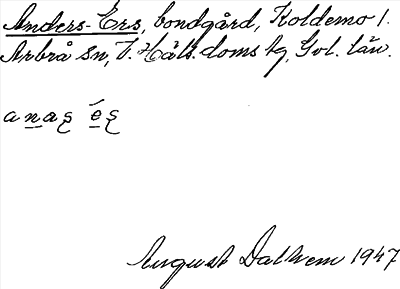 Anders-Ers, bondgård, Koldemo 1.
Arbrå sn, V. Häls. doms tg, Gvl. län.
anaʂ éʂ
August Dalhem 1947